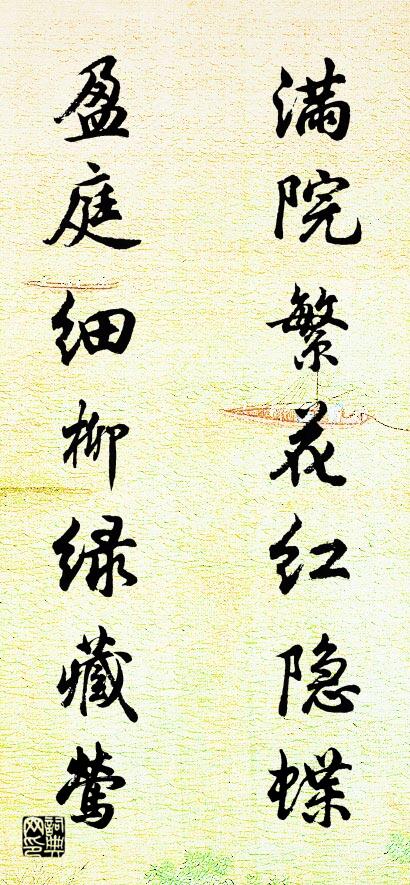 满院繁花红隐蝶
盈庭细柳绿藏莺
词典网印